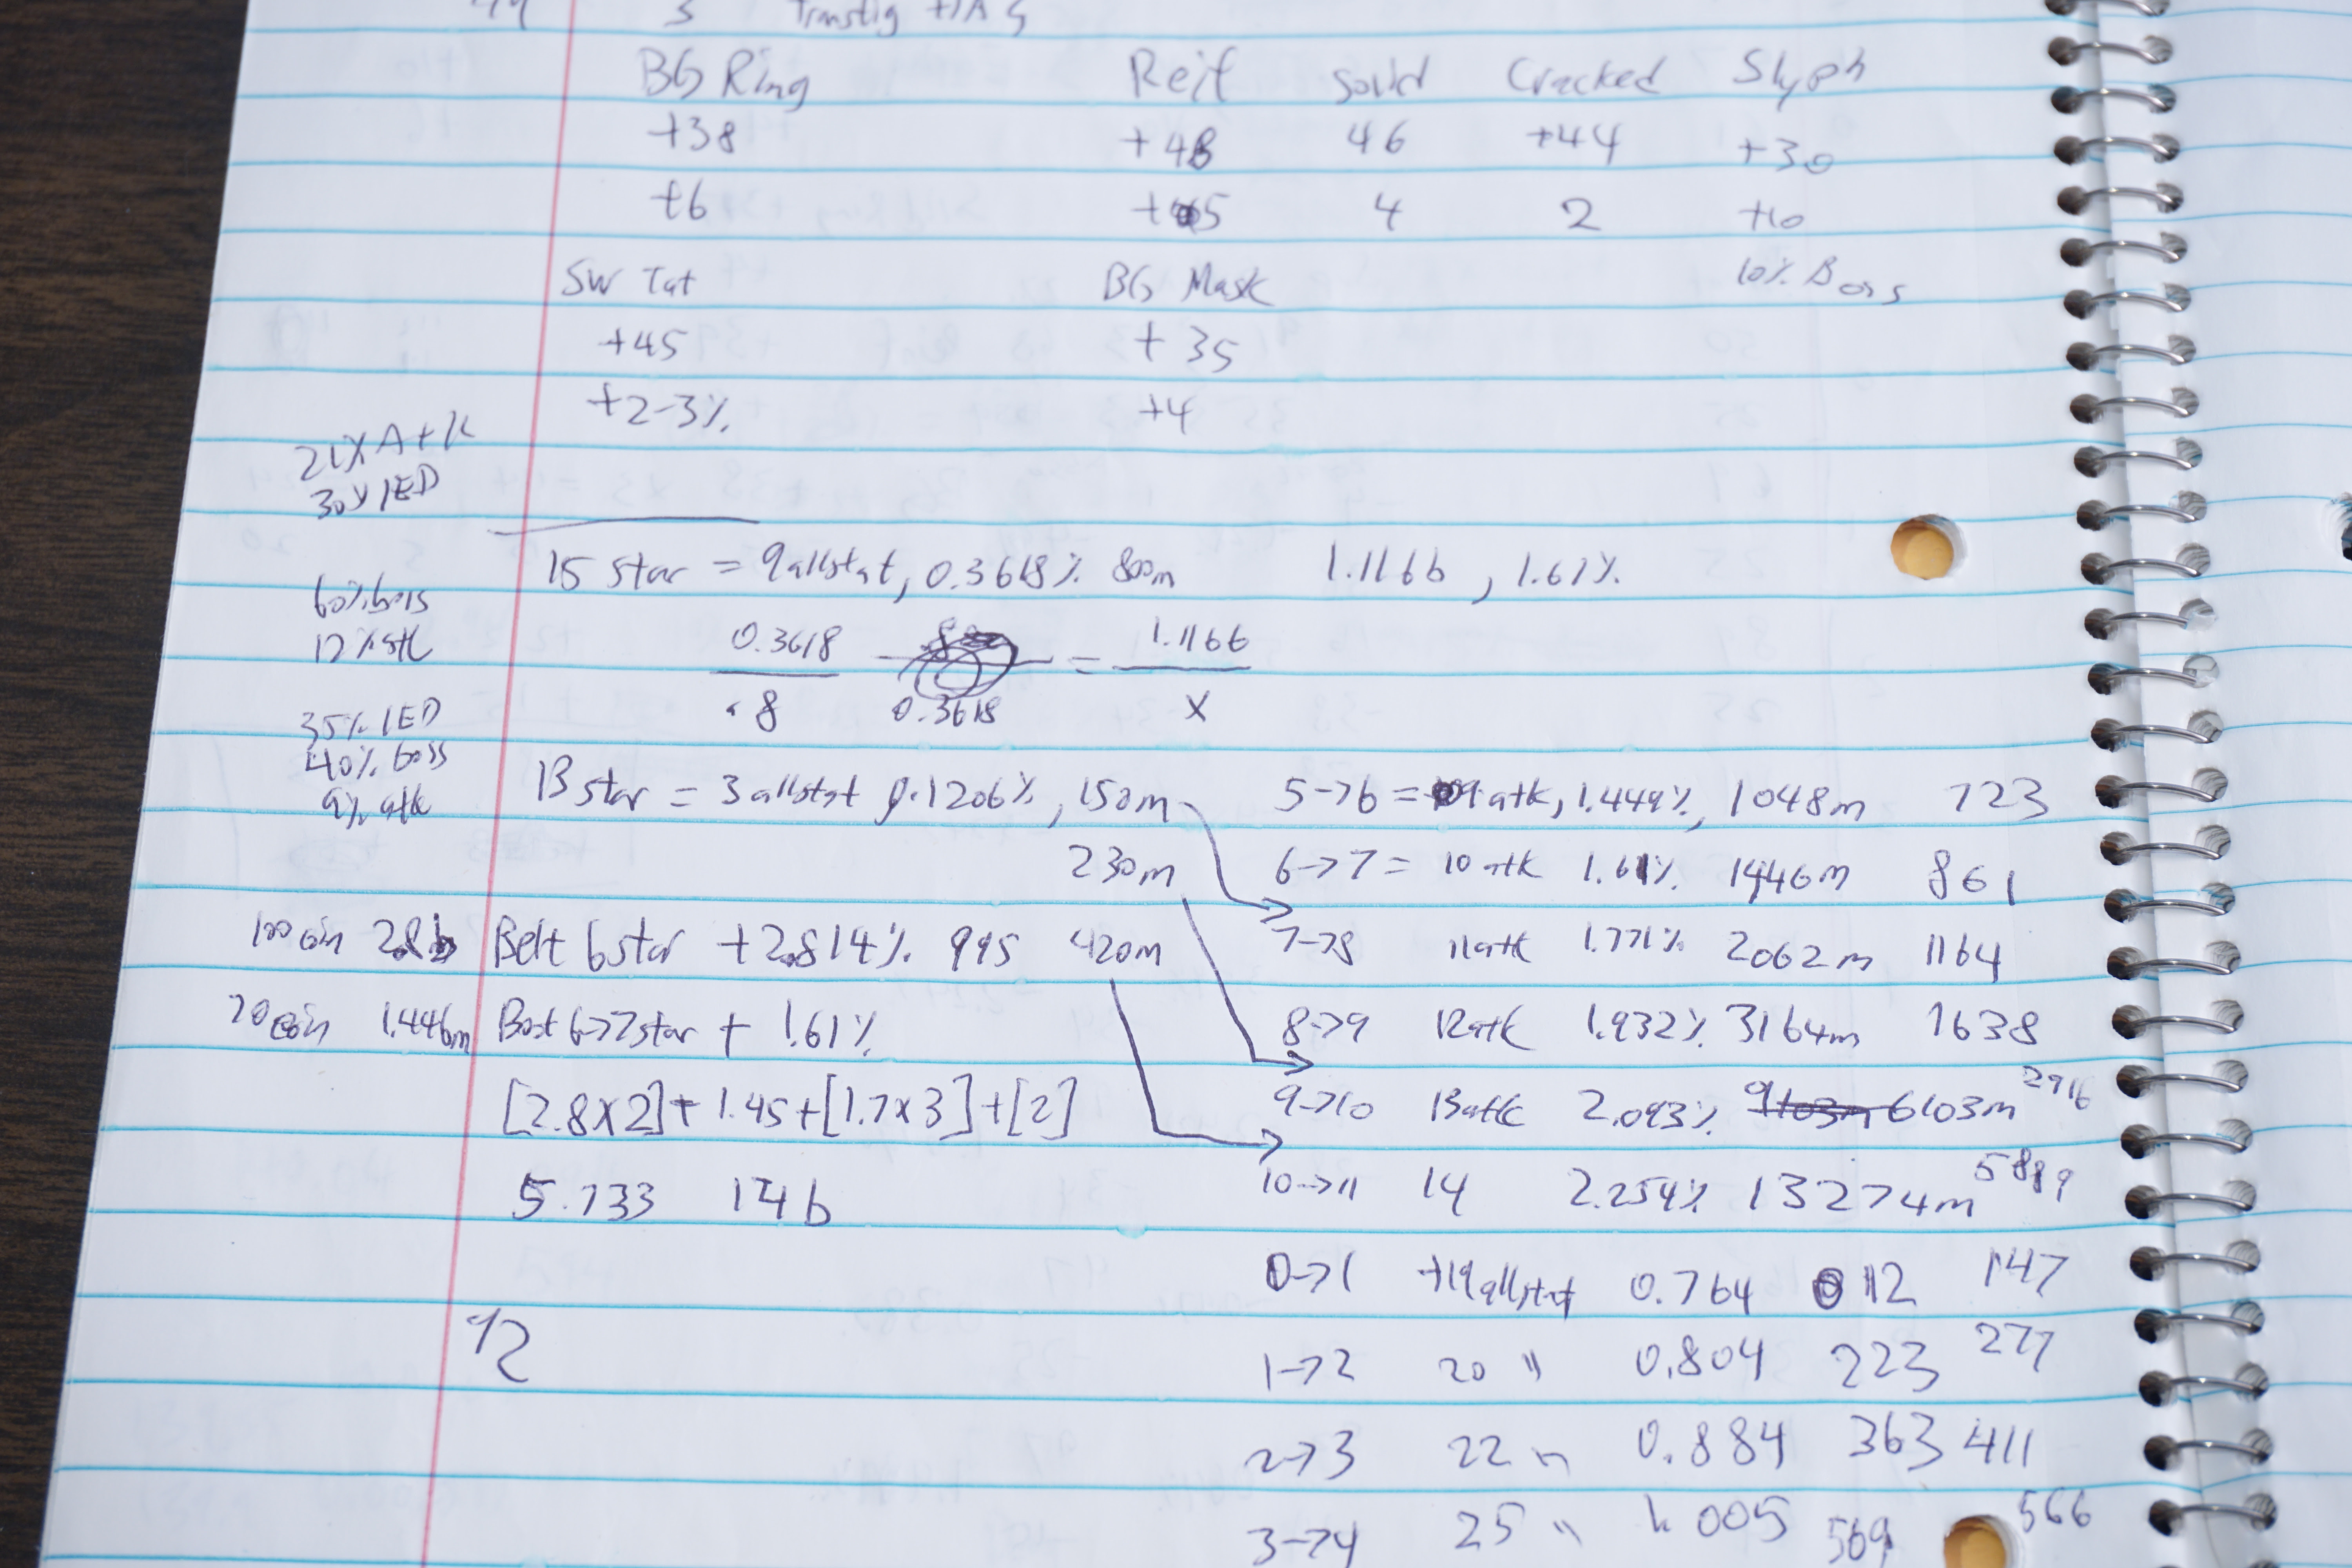 BG Ring Reif Solid Cracked Slyph
+38 +48 46 +44 +30
+6 +5 4 2 +10
SW Tat BG Mask 10% Boss
+45 +35
+2-3% +4
21% Att
30% IED
15 star = 9 allstat, 0.3618% 800m 1.116b, 1.61%
60% boss
12% atk
0.3618 = 1.1166
.8 0.3618 X
35% IED
40% boss
9% atk
13 star = 3 allstat 0.1206%, 150m 5->6 = 9 atk, 1.449%, 1048m 723
230m 6->7 = 10 atk 1.61% 1446m 861
100 coin 2.8b Belt 6 star +2.814% 995 420m 7->8 11 atk 1.771% 2062m 1164
70 coin 1.446m Best 6->7 star + 1.61% 8->9 12 atk 1.932% 3164m 1638
[2.8x2]+1.45+[1.7x3]+[2] 9->10 13 atk 2.093% 6103m 2916
5.733 14b 10->11 14 2.254% 13274m 5889
0->1 +19 allstat 0.764 112 147
1->2 20 " 0.804 223 277
2->3 22 " 0.884 363 411
3->4 25 " 1.005 569 566